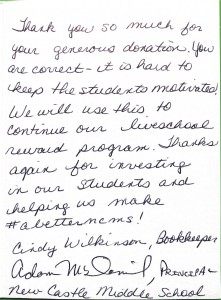 Thank you so much for
your generous donation. You
are correct - it is hard to
keep the students motivated!
We will use this to
continue our liveschool
reward program. Thanks
again for investing
in our students and
helping us make
#abetterncms!
Cindy Wilkinson, Bookkeeper
Adam McDaniel, Principal
New Castle Middle School